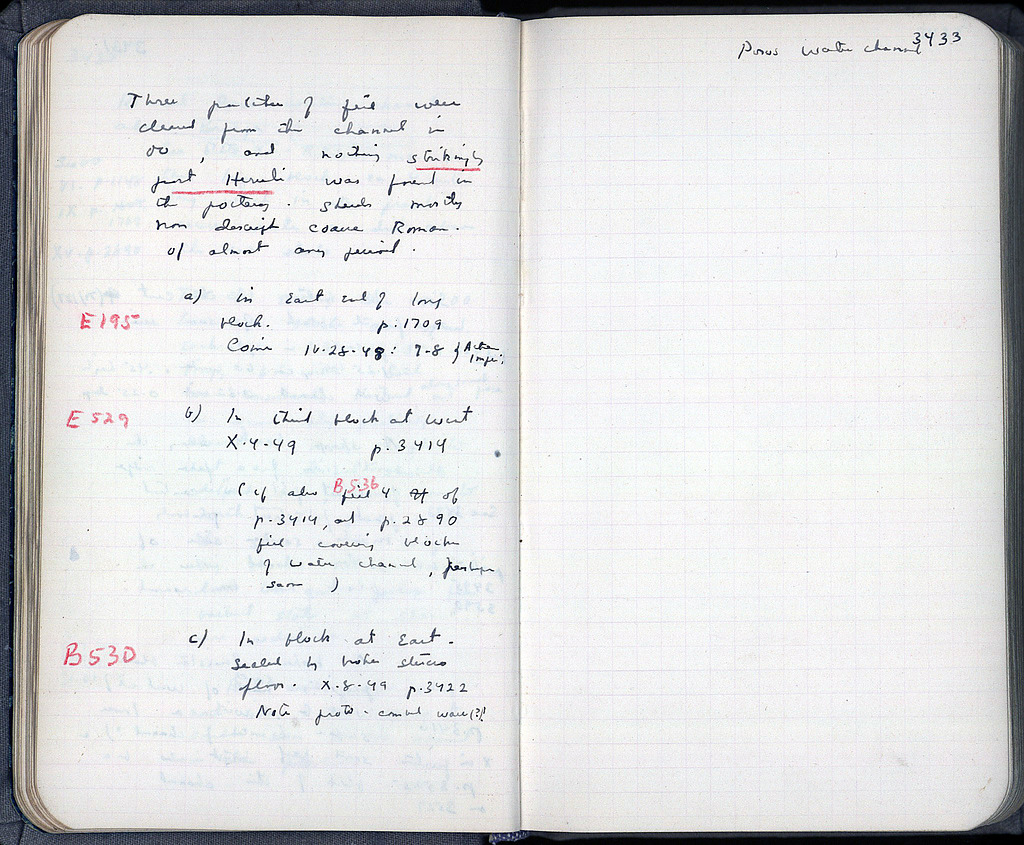 Three patches of fill were
cleared from the channel in
OO, and nothing strikingly
post Heruli was found in
the pottery. Sherds mostly
non descript coarse Roman.
of almost any period.
a) in East End of long
E 195
block. p. 1709
Coin IV-28-48: 7-8
E 529
b) In third block at west
X-4-49 p. 3414
B 536
(cf also fill 4 of
p. 3414, at p. 2890
fill covering blocks
of water channel, perhaps
same)
c) In block at East.
B 530
Sealed by broken stucco
floor. X-8-49 p. 3422
Note proto-combed ware (?)!
3433
Poros Water channel